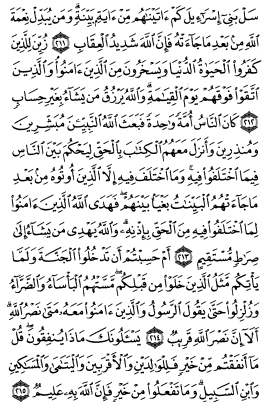 سَلْ بَنِىٓ إِسْرَٰٓءِيلَ كَمْ ءَاتَيْنَٰهُم مِّنْ ءَايَةٍۭ بَيِّنَةٍ ۗ وَمَن يُبَدِّلْ نِعْمَةَ
ٱللَّهِ مِنۢ بَعْدِ مَا جَآءَتْهُ فَإِنَّ ٱللَّهَ شَدِيدُ ٱلْعِقَابِ ٢١١ زُيِّنَ لِلَّذِينَ
كَفَرُوا۟ ٱلْحَيَوٰةُ ٱلدُّنْيَا وَيَسْخَرُونَ مِنَ ٱلَّذِينَ ءَامَنُوا۟ ۘ وَٱلَّذِينَ
ٱتَّقَوْا۟ فَوْقَهُمْ يَوْمَ ٱلْقِيَٰمَةِ ۗ وَٱللَّهُ يَرْزُقُ مَن يَشَآءُ بِغَيْرِ حِسَابٍ
٢١٢ كَانَ ٱلنَّاسُ أُمَّةً وَٰحِدَةً فَبَعَثَ ٱللَّهُ ٱلنَّبِيِّـۧنَ مُبَشِّرِينَ
وَمُنذِرِينَ وَأَنزَلَ مَعَهُمُ ٱلْكِتَٰبَ بِٱلْحَقِّ لِيَحْكُمَ بَيْنَ ٱلنَّاسِ
فِيمَا ٱخْتَلَفُوا۟ فِيهِ ۚ وَمَا ٱخْتَلَفَ فِيهِ إِلَّا ٱلَّذِينَ أُوتُوهُ مِنۢ بَعْدِ
مَا جَآءَتْهُمُ ٱلْبَيِّنَٰتُ بَغْيًۢا بَيْنَهُمْ ۖ فَهَدَى ٱللَّهُ ٱلَّذِينَ ءَامَنُوا۟
لِمَا ٱخْتَلَفُوا۟ فِيهِ مِنَ ٱلْحَقِّ بِإِذْنِهِۦ ۗ وَٱللَّهُ يَهْدِى مَن يَشَآءُ إِلَىٰ
صِرَٰطٍ مُّسْتَقِيمٍ ٢١٣ أَمْ حَسِبْتُمْ أَن تَدْخُلُوا۟ ٱلْجَنَّةَ وَلَمَّا
يَأْتِكُم مَّثَلُ ٱلَّذِينَ خَلَوْا۟ مِن قَبْلِكُم ۖ مَّسَّتْهُمُ ٱلْبَأْسَآءُ وَٱلضَّرَّآءُ
وَزُلْزِلُوا۟ حَتَّىٰ يَقُولَ ٱلرَّسُولُ وَٱلَّذِينَ ءَامَنُوا۟ مَعَهُۥ مَتَىٰ نَصْرُ ٱللَّهِ ۗ
أَلَآ إِنَّ نَصْرَ ٱللَّهِ قَرِيبٌ ٢١٤ يَسْـَٔلُونَكَ مَاذَا يُنفِقُونَ ۖ قُلْ
مَآ أَنفَقْتُم مِّنْ خَيْرٍ فَلِلْوَٰلِدَيْنِ وَٱلْأَقْرَبِينَ وَٱلْيَتَٰمَىٰ وَٱلْمَسَٰكِينِ
وَٱبْنِ ٱلسَّبِيلِ ۗ وَمَا تَفْعَلُوا۟ مِنْ خَيْرٍ فَإِنَّ ٱللَّهَ بِهِۦ عَلِيمٌ ٢١٥